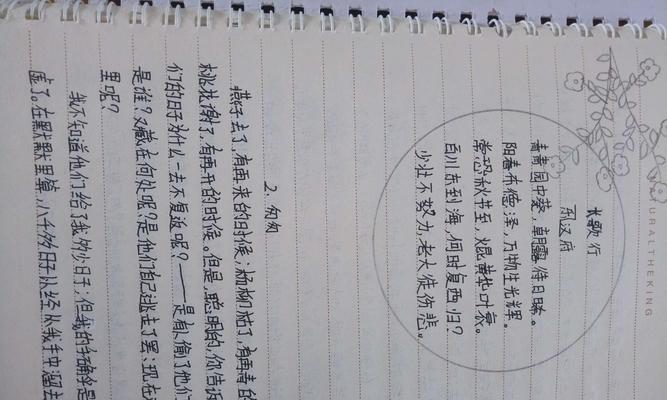 URALTHEKING
长歌行
汉乐府
青青园中葵，朝露待日晞。
阳春布德泽，万物生光辉。
常恐秋节至，焜黄华叶衰。
百川东到海，何时复西归？
少壮不努力，老大徒伤悲。
2. 匆匆
燕子去了，有再来的时候；杨柳枯了，有再青的
桃花谢了，有再开的时候。但是，聪明的，你告诉
们的日子为什么一去不复返呢？——是有人偷了他们
是谁？又藏在何处呢？是他们自己逃走了罢：现在
里呢？
我不知道他们给了我多少日子；但我的手确乎是
虚了。在默默里算，八千多日子从经从我手中溜去